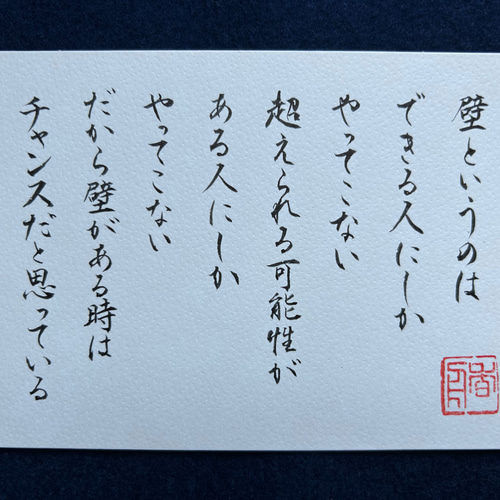 壁というのは
できる人にしか
やってこない
超えられる可能性が
ある人にしか
やってこない
だから壁がある時は
チャンスだと思っている